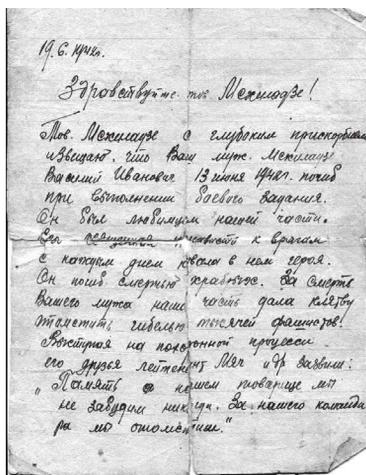 19.6.1942г.
Здравствуйте тов Месхишвили!
Тов. с глубоким прискорбием
извещаю, что Ваш муж
Василий Иванович 13 июня 1942г. погиб
при выполнении боевого задания.
Он был любимцем нашей части.
Его ненависть к врагам
с каждым днем в нем героя.
Он погиб смертью храбрых. За смерть
Вашего мужа наша часть дала клятву
отомстить гибелью тысячей фашистов!
на процесси
его друзья лейтенант Мяч и др заявили:
"Память о нашем товарище мы
не забудим никогда. За нашего команди
ра мы отомстим."